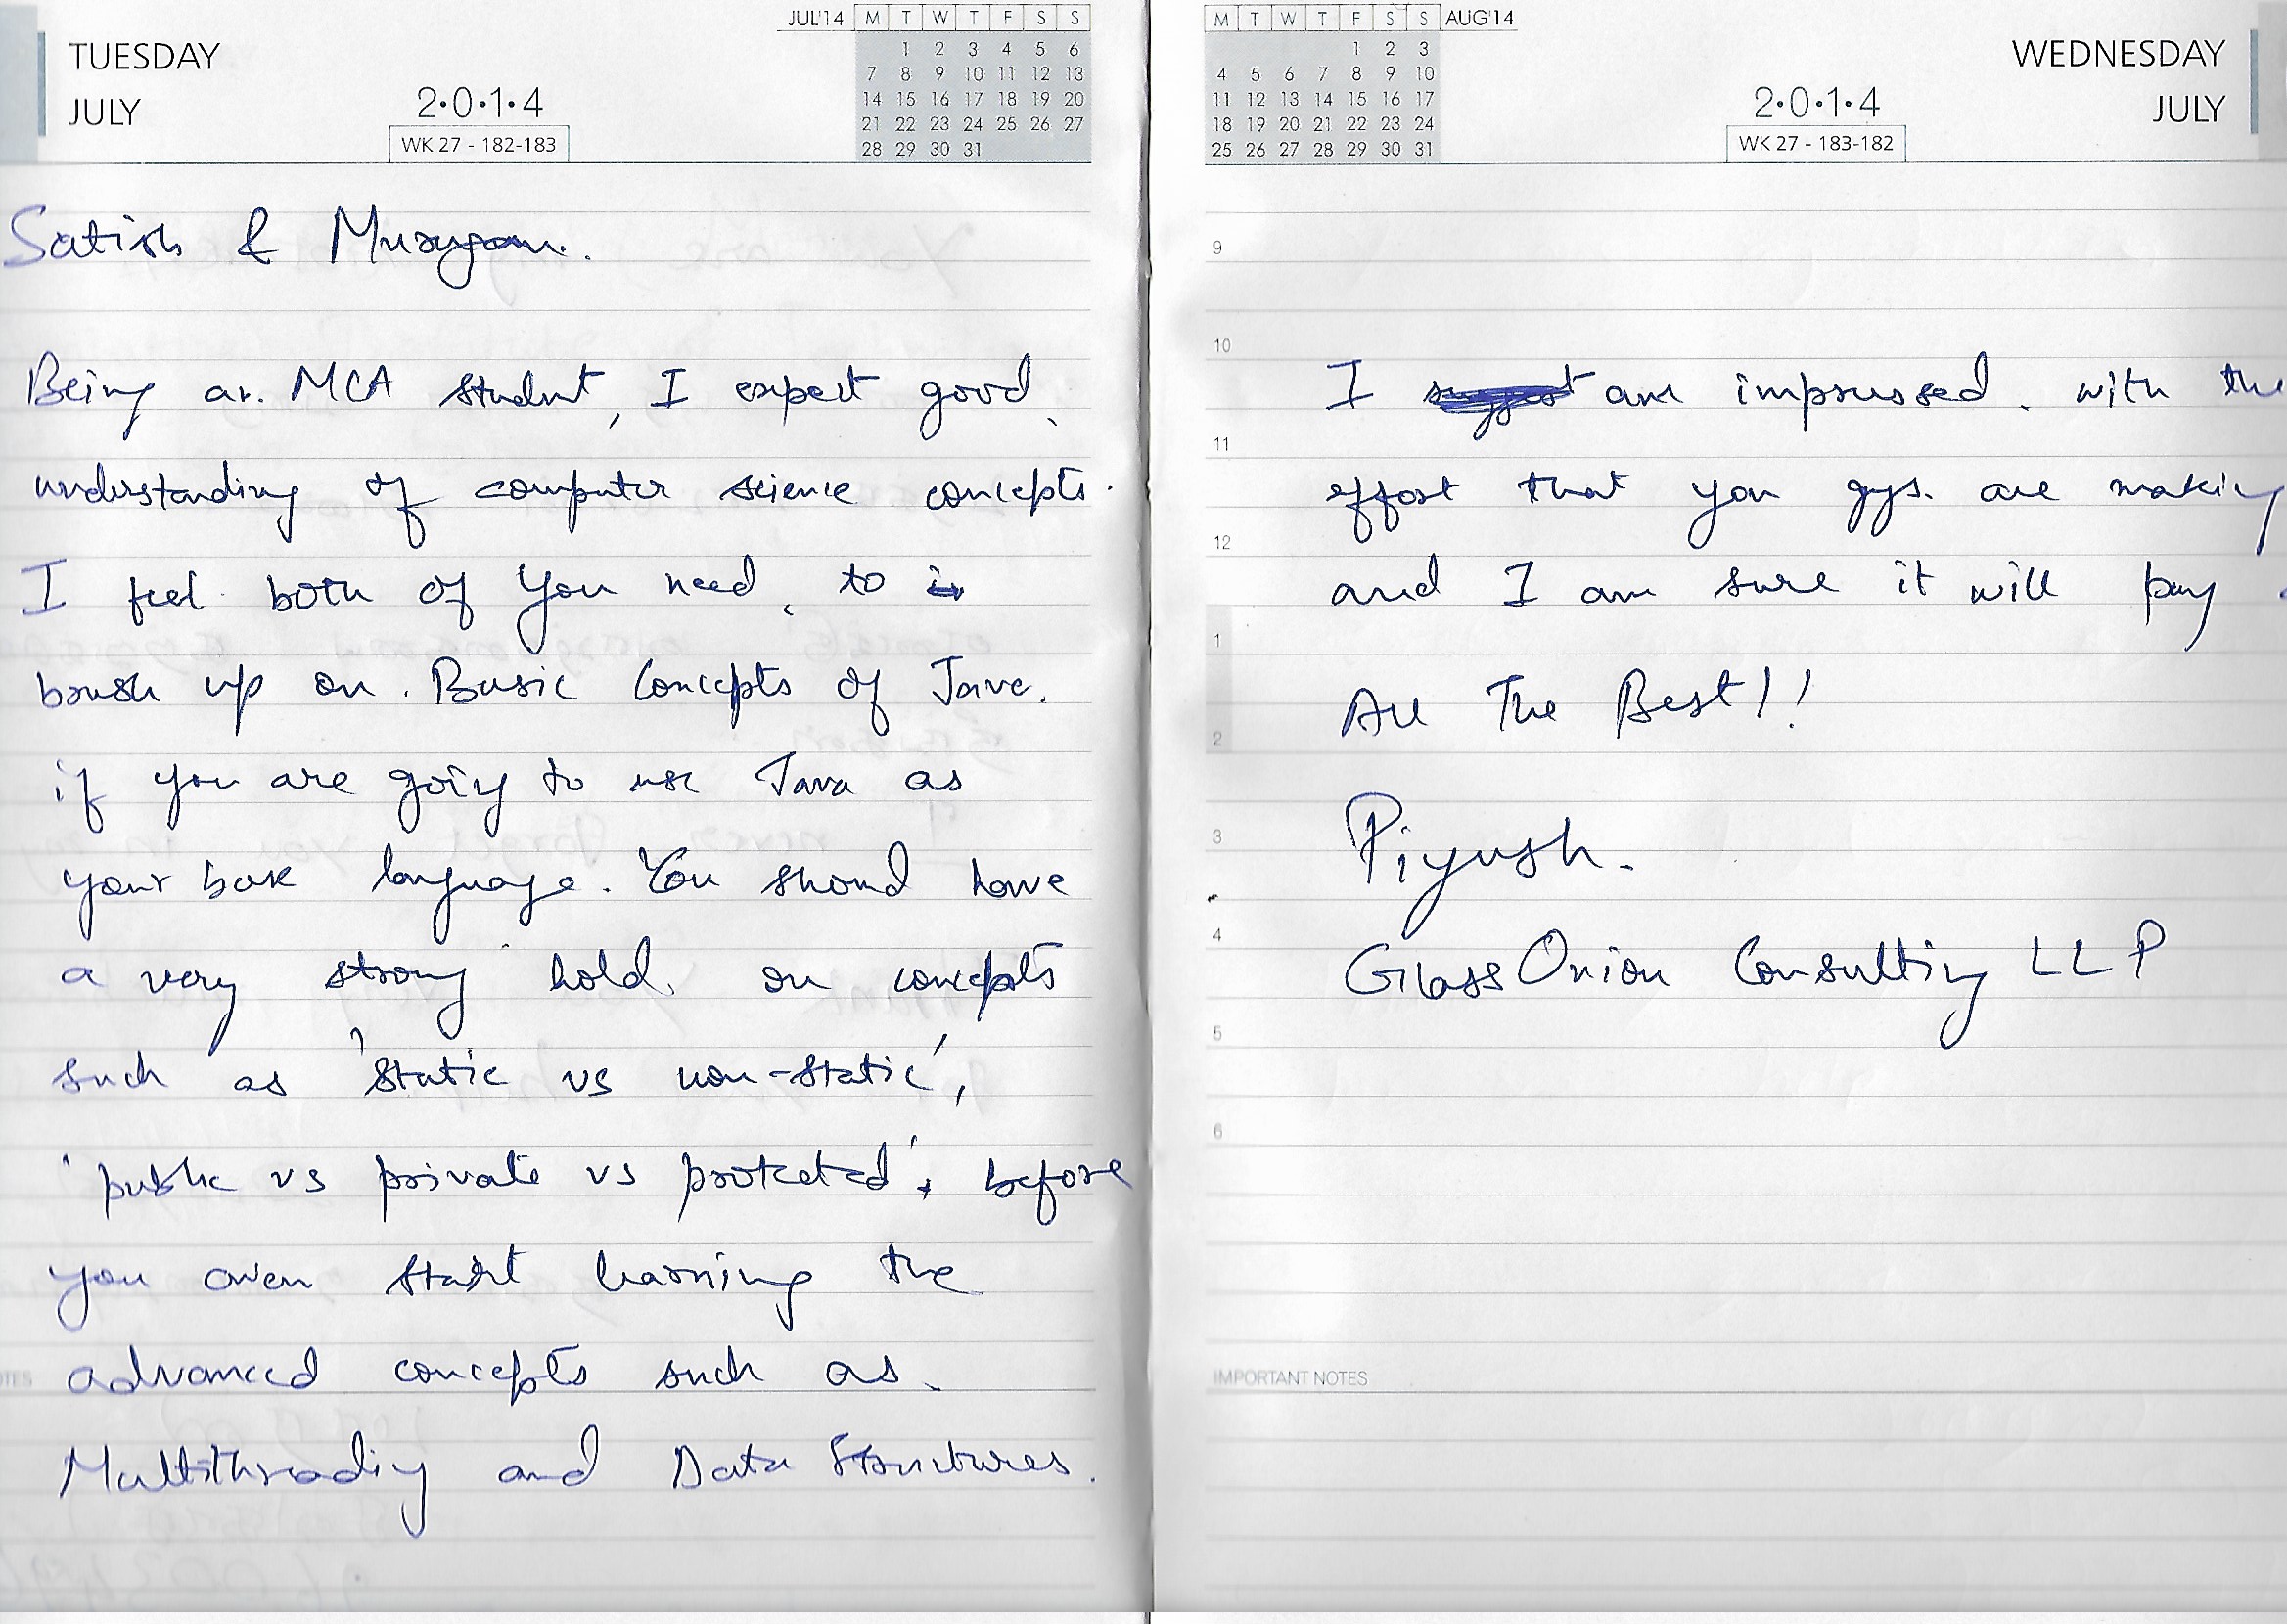 TUESDAY
JULY
2·0·1·4
WK 27 - 182-183
JUL'14 M T W T F S S
1 2 3 4 5 6
7 8 9 10 11 12 13
14 15 16 17 18 19 20
21 22 23 24 25 26 27
28 29 30 31
Satish & Murugan.
Being an MCA student, I expect good
understanding of computer science concepts.
I feel both of you need to
brush up on Basic Concepts of Java.
if you are going to use Java as
your base language. You should have
a very strong hold on concepts
such as 'static vs non-static',
'public vs private vs protected', before
you even start learning the
advanced concepts such as
Multithreading and Data Structures.
M T W T F S S AUG'14
1 2 3
4 5 6 7 8 9 10
11 12 13 14 15 16 17
18 19 20 21 22 23 24
25 26 27 28 29 30 31
2·0·1·4
WK 27 - 183-182
WEDNESDAY
JULY
9
10
I suggest am impressed with the
11
effort that you guys are making
12
and I am sure it will pay
1
All The Best!!
2
3
Piyush.
4
GlassOnion Consulting LLP
5
6
IMPORTANT NOTES